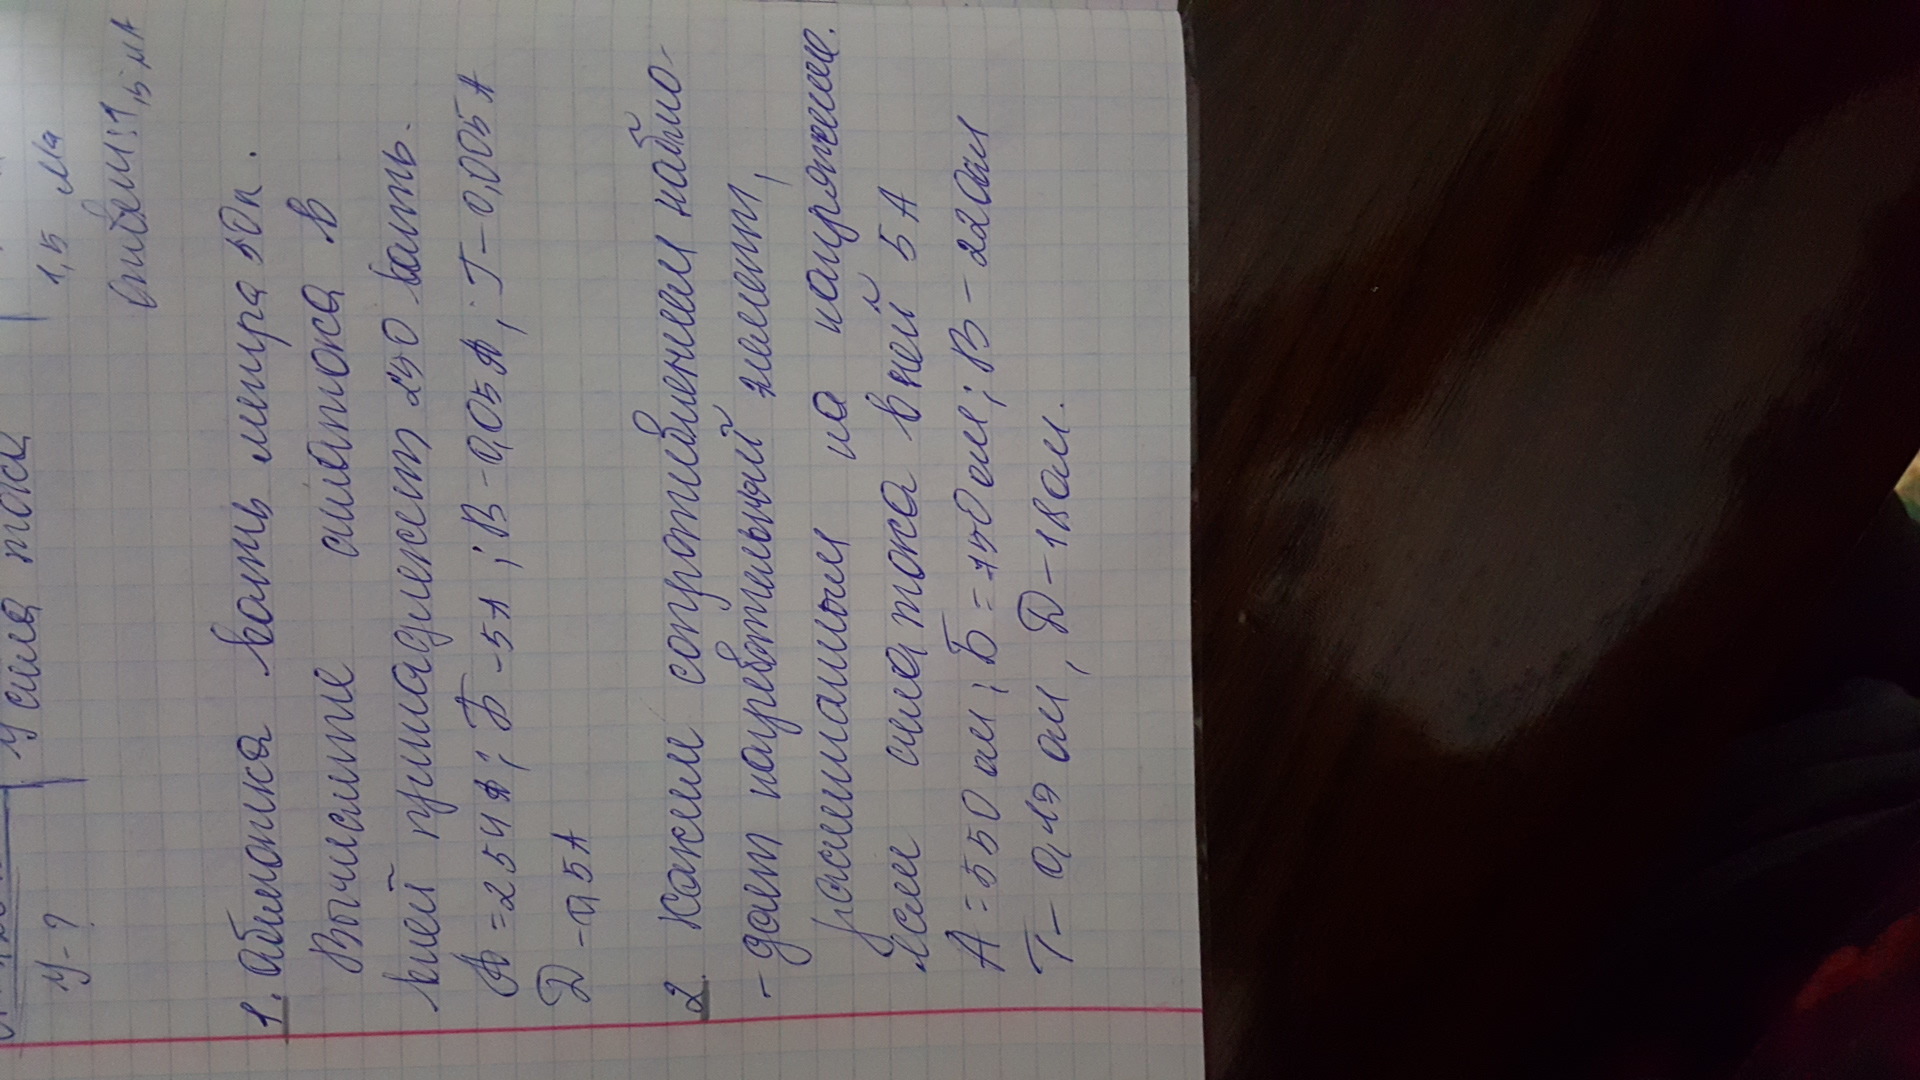 У-?
У сила тока
1,5 Ма
1,5 мА
1. абмонка вольть метра 50п.
Вычислите силатока в
ней принадлежит 250 вольть.
А = 254А; Б - 5А; В - 0,05А; Г - 0,005А
Д - 0,5А
2. Каким сопротивлением наблю-
- дает нагревательный элемент,
на напряжение.
если сила тока в ней 5А
А = 550 ам; Б = 150 ам; В - 220ам
Г - 0,19 ам, Д - 18ам.